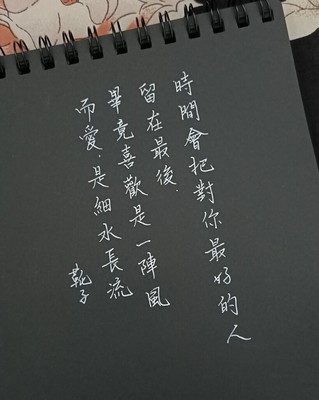 時間會把對你最好的人
留在最後.
畢竟喜歡是一陣風
而愛.是細水長流
靴子